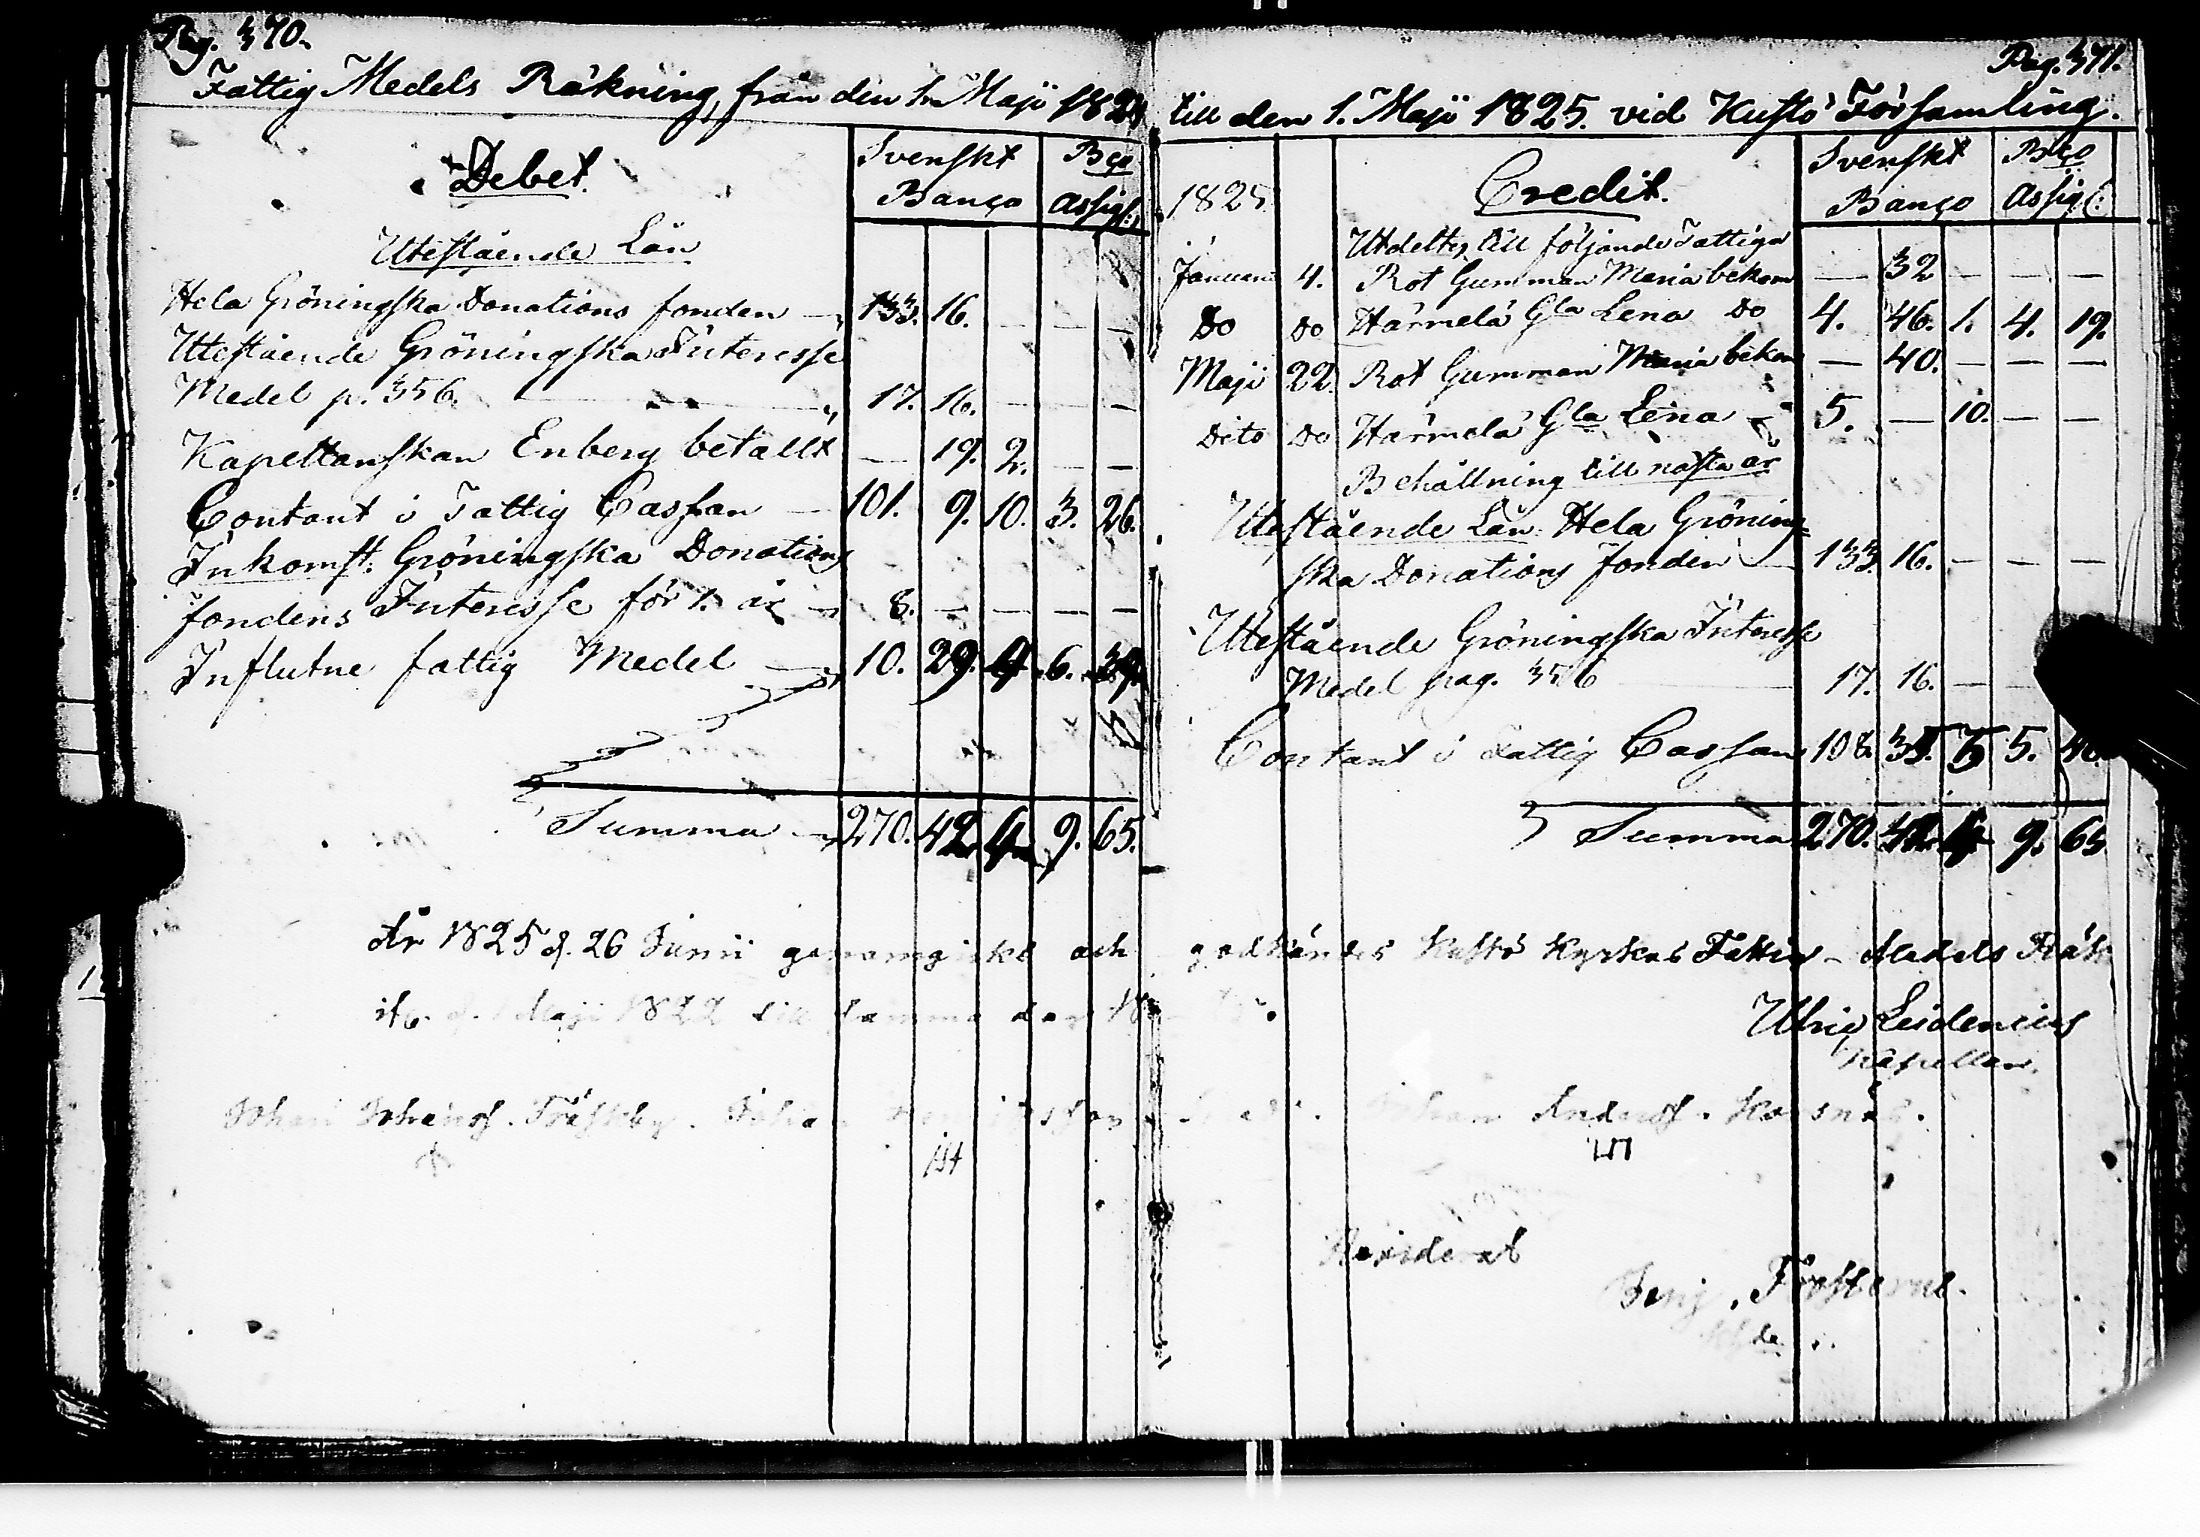 Pag. 370.
Fattig Medels Räkning, från den 1. Maji 1824
Debet.
Svenskt Banço
Bço Assigl:
Utestående Lån
Hela Gröningska Donations fonden — 133. 16. — — —
Utestående Gröningska Interesse
Medel p. 356. — 17. 16. — — —
Kapellanskan Enberg betallt — 19. 2. — —
Contant i Fattig Cassan — 101. 9. 10. 3. 26.
Inkomst: Gröningska Donations
fondens Interesse för 1. år — 8. — — — —
Influtne fattig Medel — 10. 29. 4. 6. 39.
Summa — 270. 42. 4. 9. 65.
År 1825 d. 26 Junii genomgicks och
d. Maji 1822 till samma dag
Johan Johanss. Träskby.
Pag. 371.
till den 1. Maji 1825. vid Kustö Församling.
1825
Credit.
Svenskt Banço
Bço Assigl:
Utdeltes till följande Fattiga
Januari 4. Rot Gumman Maria bekom — 32 — — —
Do Do Härmelä Gla Lena Do 4. 46. 1. 4. 19.
Maji 22 Rot Gumman Maria bekom — 40. — — —
Dito Do Härmelä Gla Lena — 5. — 10. — —
Behållning till nästa år
Utestående Lån Hela Gröning-
ska Donations fonden — 133. 16. — — —
Utestående Gröningska Interesse
Medel pag. 356 17. 16. —
Contant i Fattig Cassan 108. 35. 5 5. 46.
Summa 270. 42. 4 9. 65
godkändes Kustö Kyrkas Fattig-Medels Räk
Ulric Leidenius
Kapellan.
Anderss. Karsnäs.